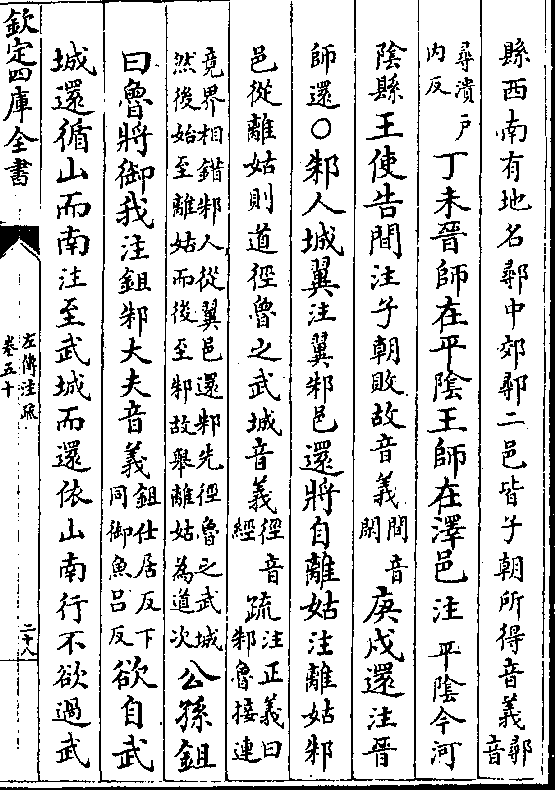 縣西南有地名鄩中郊鄩二邑皆子朝所得音義鄩音
尋潰戶内反丁未晉師在平陰王師在澤邑注平陰今河
陰縣王使告間注子朝敗故音義間音閑庚戌還注晉
師還○邾人城翼注翼邾邑還將自離姑注離姑邾
邑從離姑則道徑魯之武城音義徑音經疏注正義曰邾魯接連
竟界相錯邾人從翼邑還邾先徑魯之武城然後始至離姑而後至邾故舉離姑為道次公孫鉏
曰魯將御我注鉏邾大夫音義鉏仕居反下同御魚吕反欲自武
城還循山而南注至武城而還依山南行不欲過武
欽定四庫全書
左傳注疏
卷五十
二十八